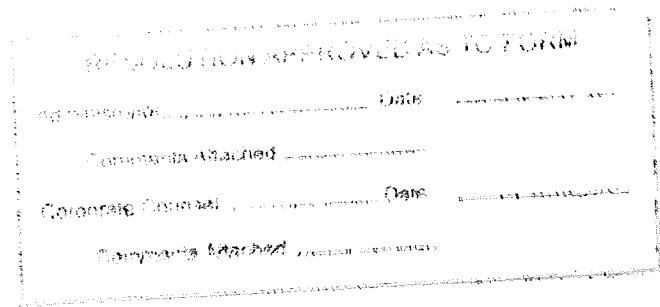 RESOLUTION APPROVED AS TO FORM
Date
Comments Attached
Corporate Counsel Date
Comments Attached